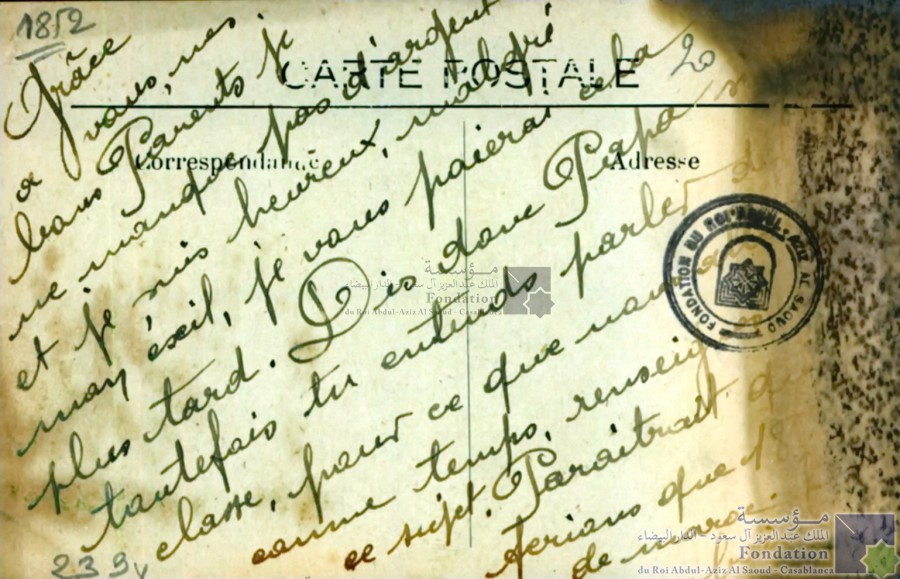 1852
CARTE POSTALE
20
Correspondance
Adresse
Grâce
à vous, mes
bons Parents je
ne manque pas d'argent
et je suis heureux, malgré
mon exil, je vous paierai cela
plus tard. Dis donc Papa si
toutefois tu entends parler de
classe, pour ce que nous
comme temps, renseigne
ce sujet. Paraîtrait que
ferions que 18
de maroc
FONDATION DU ROI ABDUL-AZIZ AL SAOUD
مؤسسة
الملك عبد العزيز آل سعود - الدار البيضاء
Fondation
du Roi Abdul-Aziz Al Saoud - Casablanca
239
مؤسسة
الملك عبد العزيز آل سعود - الدار البيضاء
Fondation
du Roi Abdul-Aziz Al Saoud - Casablanca